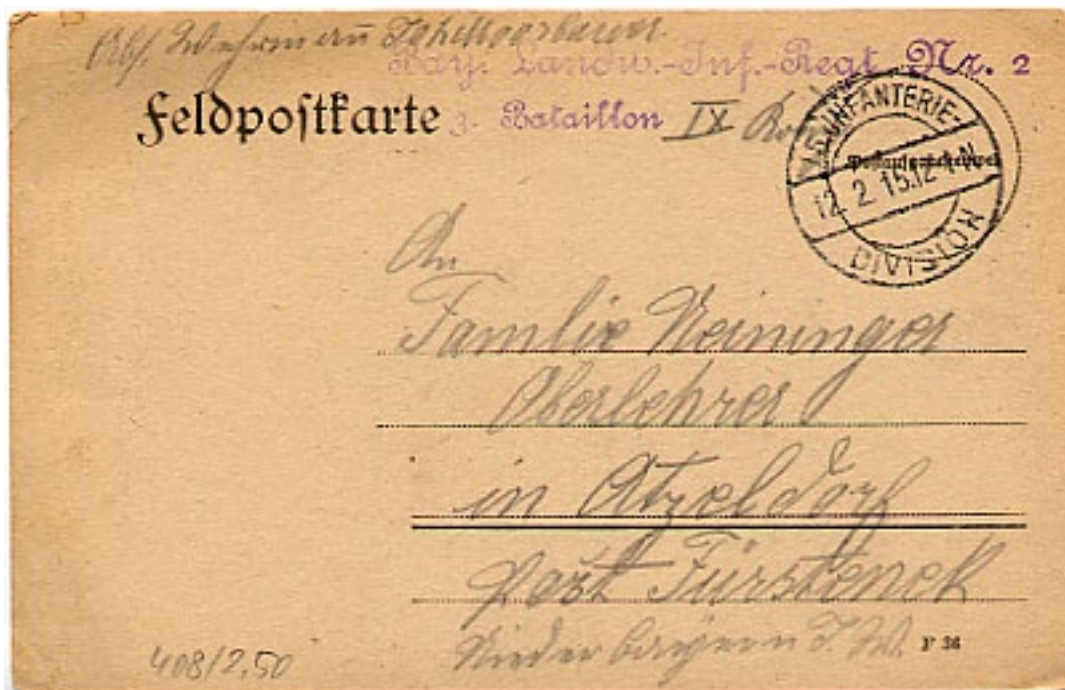 Abs. Wehrmann
Bay. Landw.-Inf.-Regt. Nr. 2
Feldpostkarte 3. Bataillon IX
INFANTERIE-
12. 2. 15. 12-1 N.
DIVISION
An
Familie Meininger
Oberlehrer
in Atzeldorf
Post Fürsteneck
Nieder bayern I. W.
F 36
408/2,50